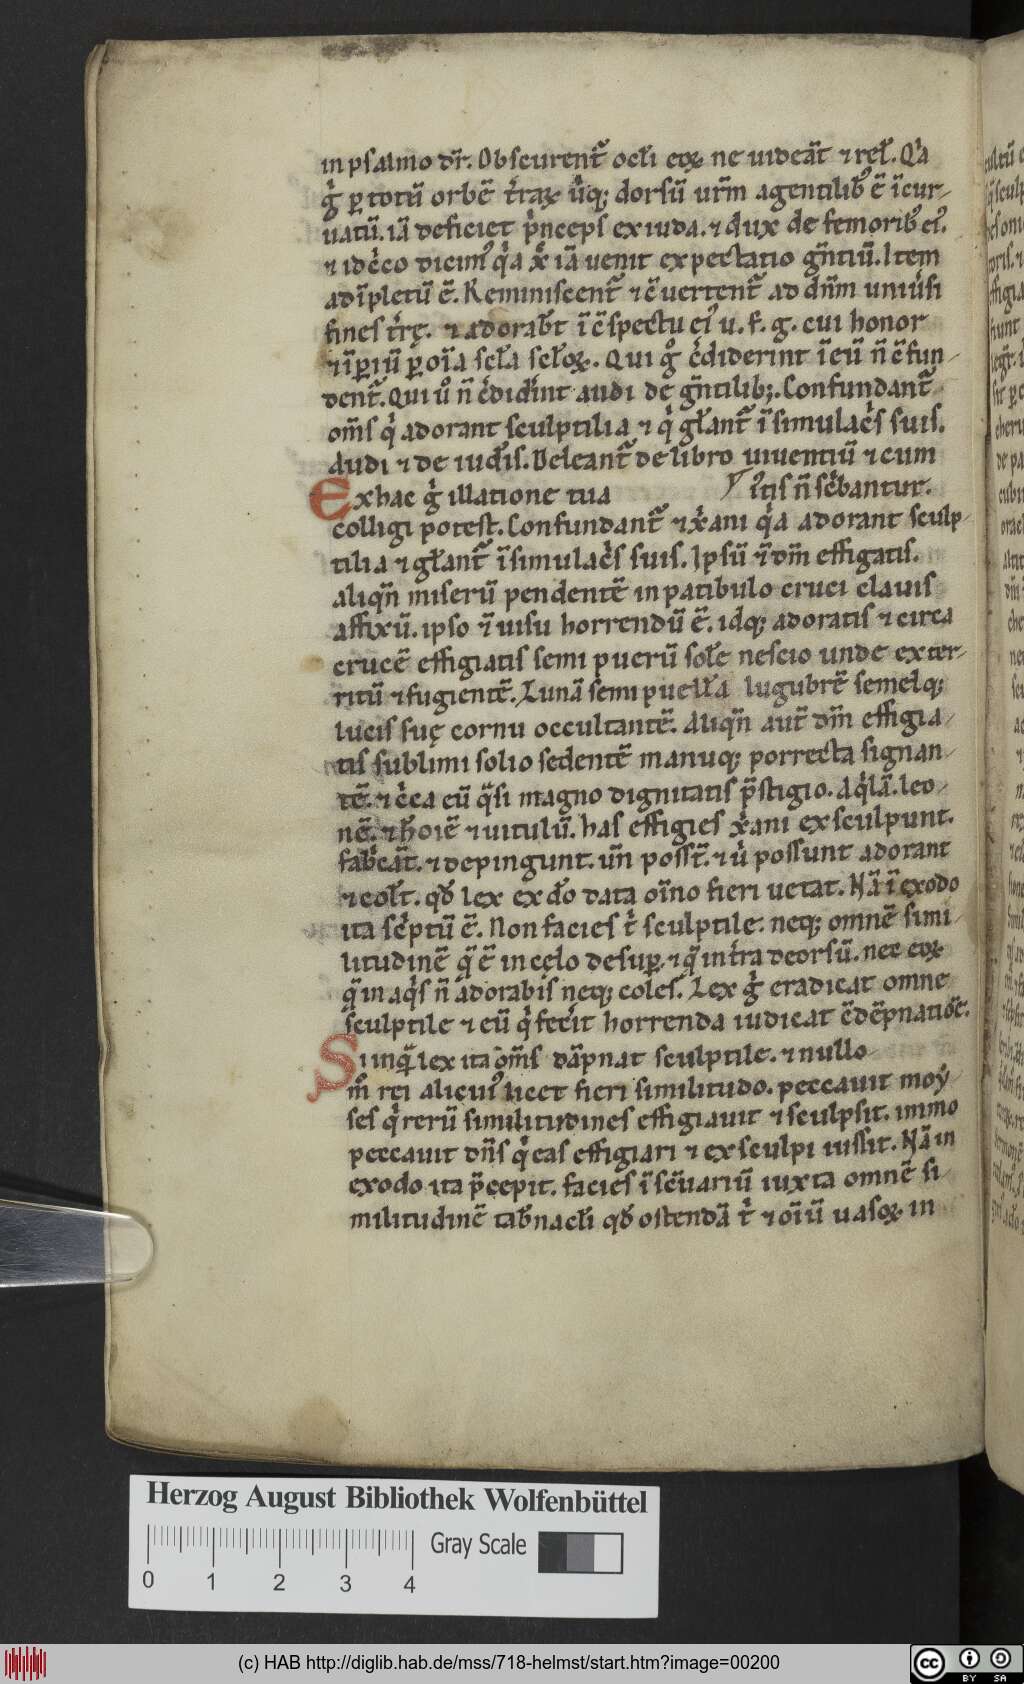 in psalmo dr̄. Obscurent᷑ ocł̓i eoꝝ ne uideāt ⁊ rel̓. Q̓a
g̓ ꝑ totū orbē t̓raꝝ ūq; dorsū ur̄m a gentilib; ē īcur-
uatū. iā deficiet p̓nceps ex iuda. ⁊ dux de femorib; ei᷒.
⁊ idc̓co dicim᷒ q̓a xp̄c iā uenit expectatio gn̄tiū. Item
adīpletū ē. Reminiscent᷑ ⁊ cuertent᷑ ad dn̄m uniūsi
fines t̓rę. ⁊ adorabt̄ ī cspectu ei᷒ u. f. g. cui honor
⁊ īꝑiū ꝑ oīa scl̄a scl̄oꝝ. Qui g̊ c̓diderint ī eū n̄ cfun-
dent᷑. Qui ů n̄ c̓didint audi de gn̄tilib;. Confundant᷑
om̄s q̓ adorant sculptilia ⁊ q̓ gl̄ant᷑ ī simulac̓s suis.
Audi ⁊ de iud̓is. Deleant᷑ de libro uiuentiū ⁊ cum
Ex hac g̓ illatione tua i᷒tis n̄ sc̓bantur.
colligi potest. Confundant᷑ ⁊ xp̄ani q̓a adorant sculp-
tilia ⁊ gl̄ant᷑ ī simulac̓s suis. Ipsū n̄ dm̄ effigatis.
aliqn̄ miserū pendentē in patibulo cruci clauis
affixū. ipso n̄ uisu horrendū ē. idq; adoratis ⁊ circa
crucē effigiatis semi puerū solē nescio unde exter-
ritū ⁊ fugientē. Lunā semi puella lugubrē semelq;
lucis suę cornu occultantē. Aliqn̄ aut̄ dm̄ effigia-
tis sublimi solio sedentē manuq; porrecta signan-
tē. ⁊ c̓ca eū q̄si magno dignitatis p̄stigio. Aq̓lā. leo-
nē. ⁊ hoīē ⁊ uitulū. has effigies xp̄ani exsculpunt.
fab̓cāt. ⁊ depingunt. un̄ posst̄. ⁊ u̓ possunt adorant
⁊ colt̄. qd̓ lex ex do̓ data oīno fieri uetat. Nā ī exodo
ita sc̓ptū ē. Non facies t̓ sculptile. neq; omnē simi-
litudinē q̄ ē in celo desuꝑ. ⁊ q̄ in t̓ra deorsū. nec eoꝝ
q̄ in aq̓s n̄ adorabis neq; coles. Lex g̓ eradicat omne
sculptile ⁊ eū q̓ fec̓it horrenda iudicat cdēpnatiōe.
Si inq̄ lex ita om̄s dāpnat sculptile. ⁊ nullo
m̊ rei alicui᷒ licet fieri similitudo. peccauit moẏ-
ses q̓ rerū similitudines effigiauit ⁊ sculpsit. immo
peccauit dn̄s q̓ eas effigiari ⁊ exsculpi iussit. Nā in
exodo ita p̄cepit. facies ī sc̄uariū iuxta omnē si-
militudinē tab̓nacl̓i qd̓ ostendā t̓ ⁊ oīū uasoꝝ in
Herzog August Bibliothek Wolfenbüttel
Gray Scale
0 1 2 3 4
(c) HAB http://diglib.hab.de/mss/718-helmst/start.htm?image=00200
cc BY SA